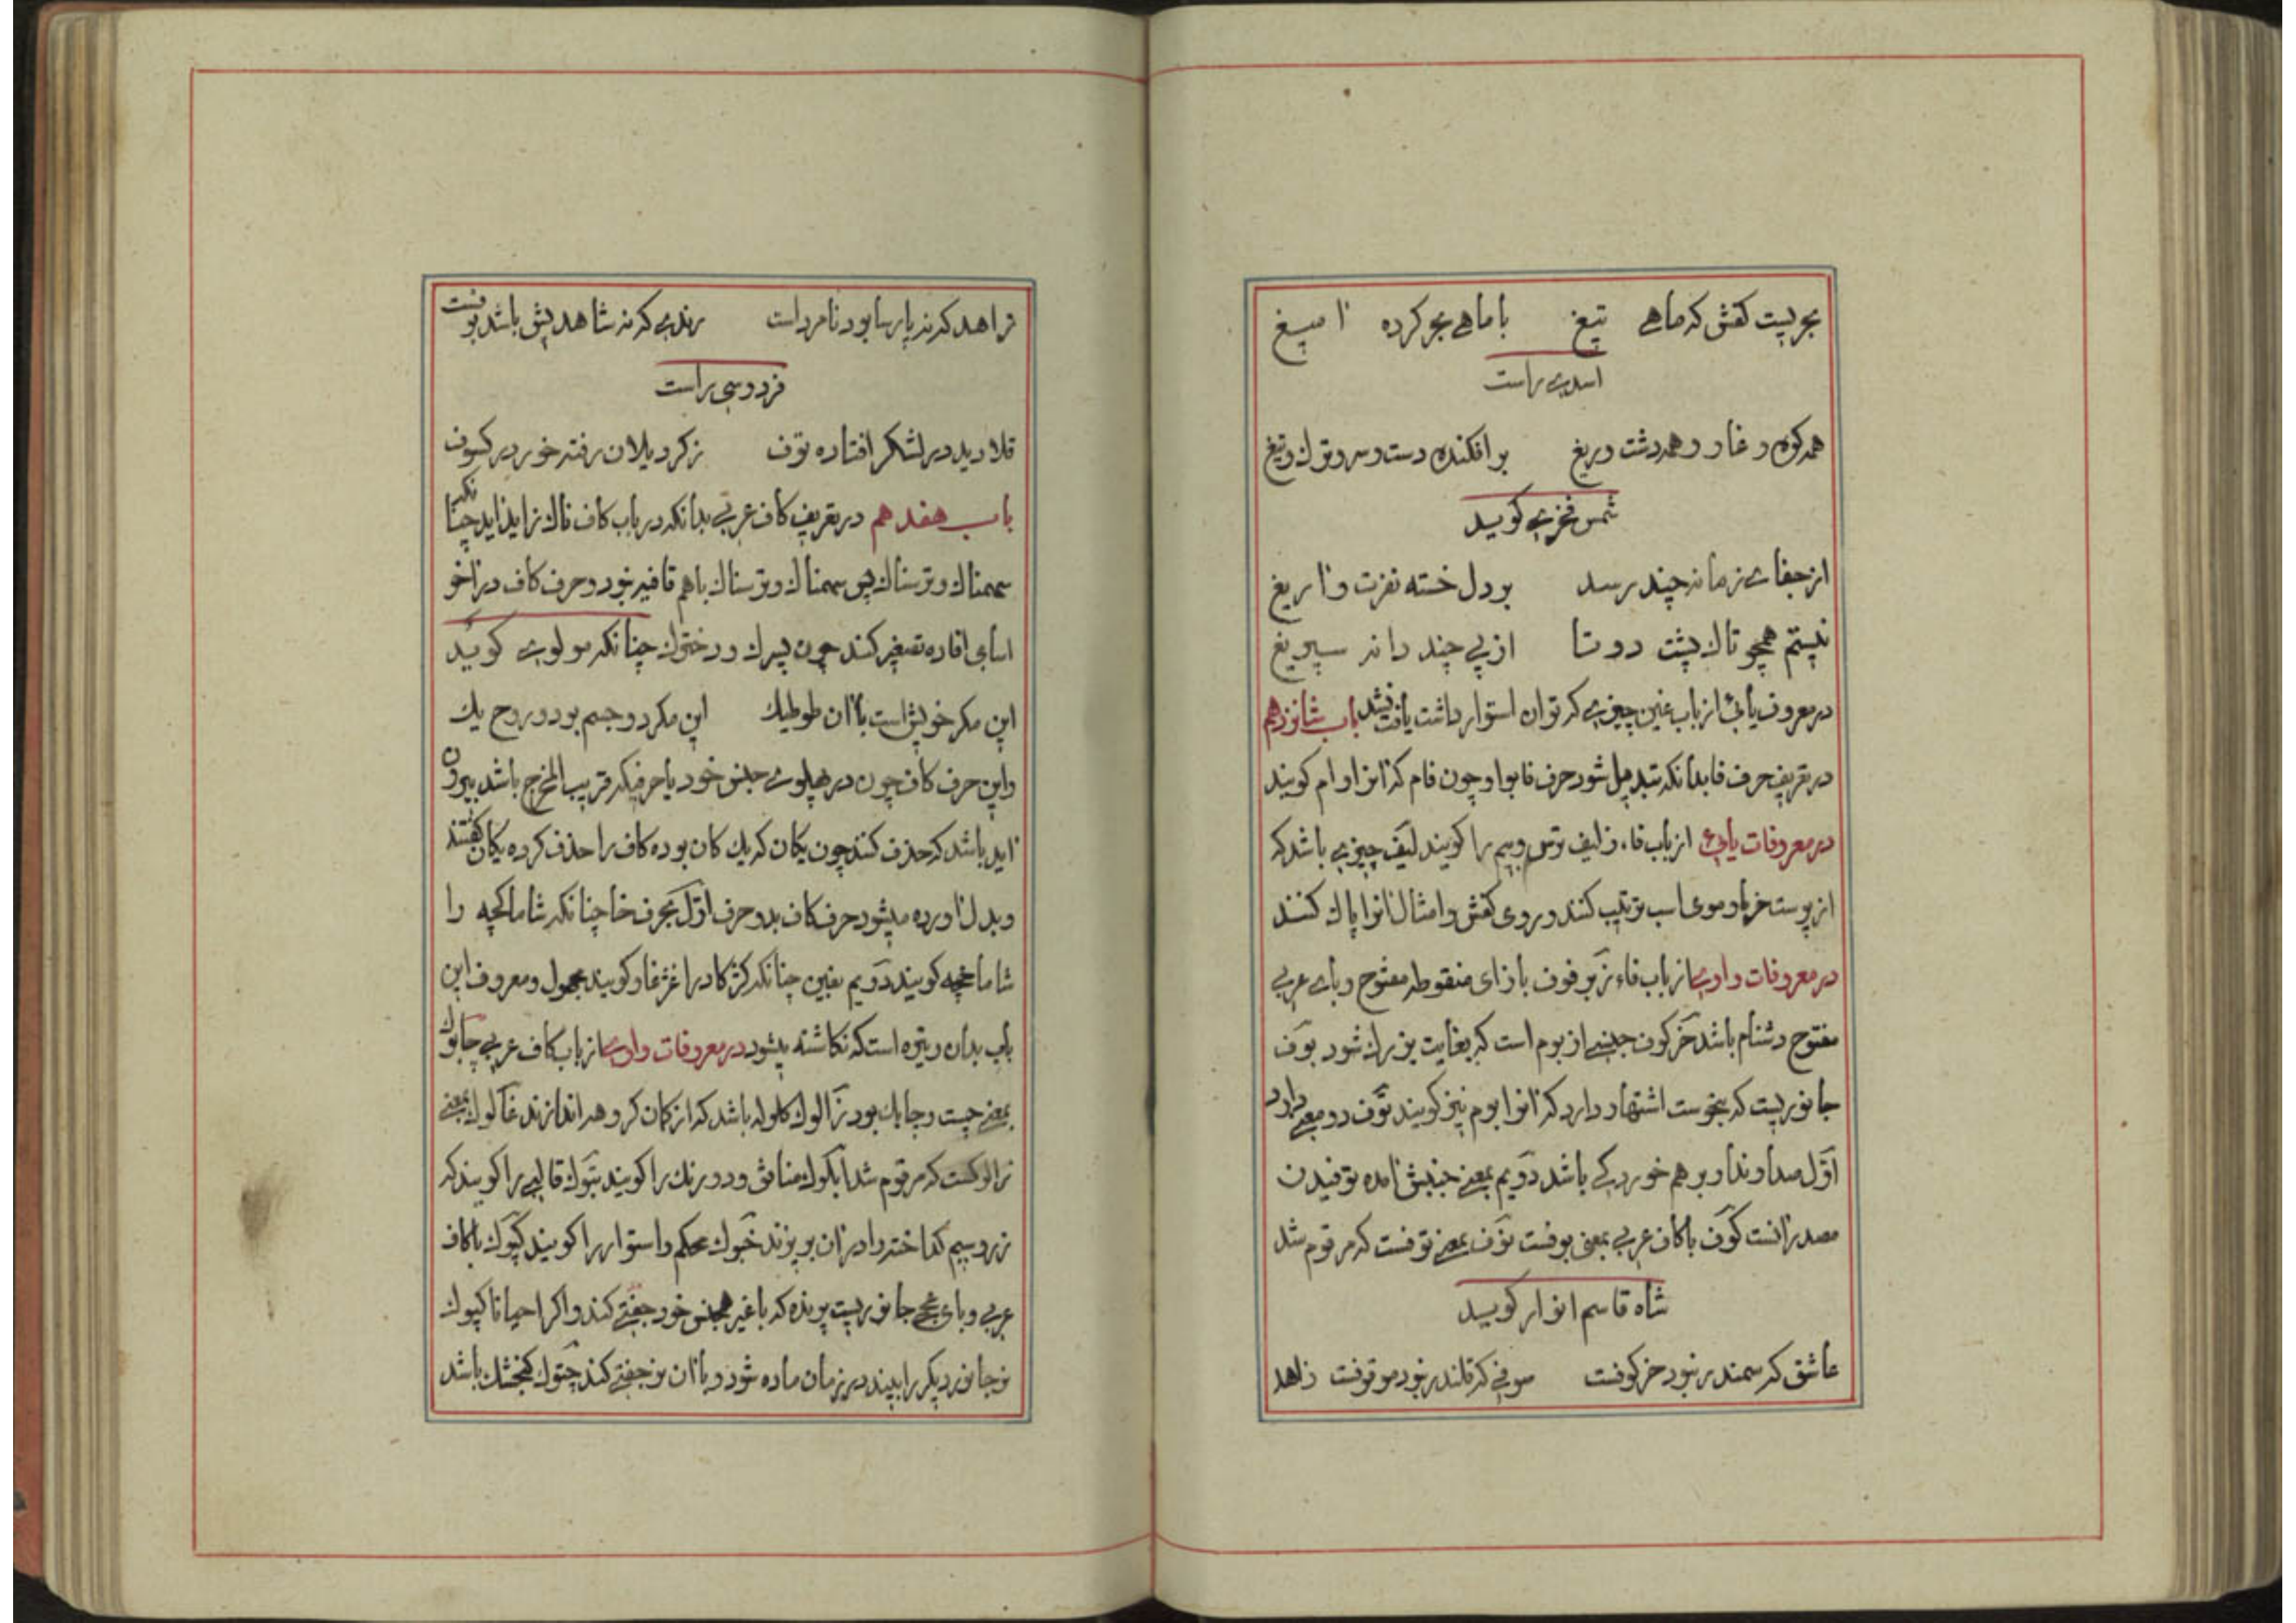 بحریست کفش که ماهی تیغ با ماهی بحر کرده آمیغ
اسدی راست
همه کوه و غار و همه دشت و ریغ بر افکنده دست و سر و ترک و تیغ
شمس فخری کوید
از جفای زمانه چند رسد بر دل خسته نفرت و آریغ
نیستم همچو تاک پشت دوتا از پی چند دانه سپریغ
در معروف یائی از باب غین چیزی که توان استوار داشت یافت نشد باب شانزدهم
در تعریف حرف فا بدانکه تبدیل شود حرف فا بواو چون فام که آنرا وام کویند
در معروفات یائی از باب فاء زلیف ترس و بیم را کویند لیف چیزی باشد که
از پوست خرما و موی اسب ترتیب کنند و روی کفش و امثال آنرا پاک کنند
در معروفات واوی از باب فاء زبرفوف با زای منقوطه مفتوح و بای عربی
مفتوح دشنام باشد خرکوف جنسی از بوم است که بغایت بزرک شود بوف
جانوریست که بنحوست اشتهار دارد که آنرا بوم نیز کویند توف دو معنی دارد
اول صدا و ندا و برهم خوردکی باشد دویم بمعنی جنبش آمده توفیدن
مصدر آنست کوف با کاف عربی بمعنی بوفست نوف بمعنی توفست که مرقوم شد
شاه قاسم انوار کوید
عاشق که سمندر نبود خرکوفست صوفی که قلندر نبود موقوفست زاهد
زاهد که نه پارسا بود نامرداست رندی که نه شاهدپیش باشد بوفست
فردوسی راست
قلا دید در لشکر افتاده توف ز کرد یلان رفته خور در کسوف
باب هفدهم در تعریف کاف عربی بدانکه در باب کاف ناک زاید آید چنانکه
سهمناک و ترسناک پس سهمناک و ترسناک باهم قافیه نبود و حرف کاف در آخر
اسامی افاده تصغیر کند چون پسرک و درختک چنانکه مولوی کوید
این مکر خویش است با آن طوطیک این مکر دو جسم بود و روح یک
و این حرف کاف چون در پهلوی جنس خود یا حرفیکه قریب المخرج باشد بیرون
آید باشد که حذف کنند چون یکان که یک کان بوده کاف را حذف کرده یکان کفتند
و بدل آورده میشود حرف کاف بدو حرف اول بحرف خا چنانکه شاماکچه را
شاماخچه کویند دویم بغین چنانکه کژکاو را غژغاو کویند مجهول و معروف این
باب بدان وتیره است که نکاشته میشود در معروفات واوی از باب کاف عربی چابوک
بمعنی چست و چابک بود زالوک کلوله باشد که از کمان کروهه اندازند غالوک بمعنی
زالوکست که مرقوم شد آبلوک منافق و دو رنک را کویند بتوک قالبی را کویند که
زر و سیم کداخته را در آن بریزند خبوک محکم و استوار را کویند کپوک با کاف
عربی و بای عجمی جانوریست پرنده که با غیر همجنس خود جفتی کند و اکر احیانا کپوک
نر جانور دیکر را بیند در زمان ماده شود و با آن نر جفتی کند چتوک کنجشک باشد